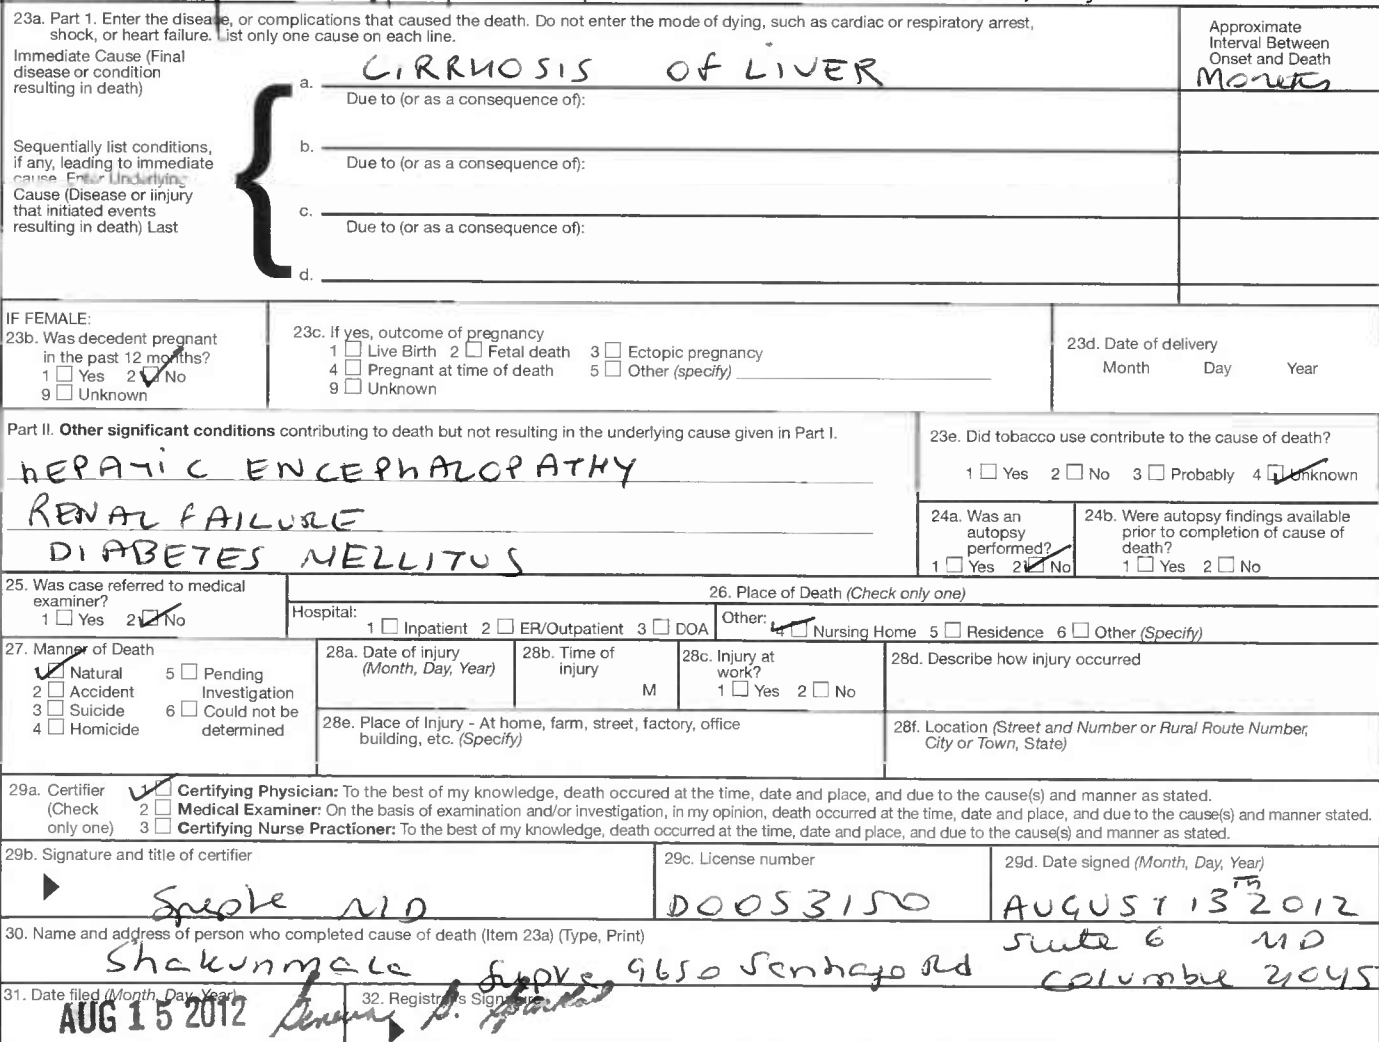 23a. Part 1. Enter the disease, or complications that caused the death. Do not enter the mode of dying, such as cardiac or respiratory arrest,
shock, or heart failure. List only one cause on each line.
Approximate
Interval Between
Onset and Death
Immediate Cause (Final
disease or condition
resulting in death)
a. CIRRHOSIS OF LIVER
Due to (or as a consequence of):
Sequentially list conditions,
if any, leading to immediate
cause. Enter Underlying
Cause (Disease or iinjury
that initiated events
resulting in death) Last
b.
Due to (or as a consequence of):
c.
Due to (or as a consequence of):
d.
IF FEMALE:
23b. Was decedent pregnant
in the past 12 months?
1 Yes 2 No
9 Unknown
23c. If yes, outcome of pregnancy
1 Live Birth 2 Fetal death 3 Ectopic pregnancy
4 Pregnant at time of death 5 Other (specify)
9 Unknown
23d. Date of delivery
Month Day Year
Part II. Other significant conditions contributing to death but not resulting in the underlying cause given in Part I.
HEPATIC ENCEPHALOPATHY
RENAL FAILURE
DIABETES MELLITUS
23e. Did tobacco use contribute to the cause of death?
1 Yes 2 No 3 Probably 4 Unknown
24a. Was an
autopsy
performed?
1 Yes 2 No
24b. Were autopsy findings available
prior to completion of cause of
death?
1 Yes 2 No
25. Was case referred to medical
examiner?
1 Yes 2 No
26. Place of Death (Check only one)
Hospital:
1 Inpatient 2 ER/Outpatient 3 DOA
Other:
4 Nursing Home 5 Residence 6 Other (Specify)
27. Manner of Death
1 Natural 5 Pending
2 Accident Investigation
3 Suicide 6 Could not be
4 Homicide determined
28a. Date of injury
(Month, Day, Year)
28b. Time of
injury
M
28c. Injury at
work?
1 Yes 2 No
28d. Describe how injury occurred
28e. Place of Injury - At home, farm, street, factory, office
building, etc. (Specify)
28f. Location (Street and Number or Rural Route Number,
City or Town, State)
29a. Certifier
(Check
only one)
1 Certifying Physician: To the best of my knowledge, death occured at the time, date and place, and due to the cause(s) and manner as stated.
2 Medical Examiner: On the basis of examination and/or investigation, in my opinion, death occurred at the time, date and place, and due to the cause(s) and manner stated.
3 Certifying Nurse Practioner: To the best of my knowledge, death occurred at the time, date and place, and due to the cause(s) and manner as stated.
29b. Signature and title of certifier
MD
29c. License number
D0053150
29d. Date signed (Month, Day, Year)
AUGUST 13TH 2012
30. Name and address of person who completed cause of death (Item 23a) (Type, Print)
9650 Rd
Suite 6 MD
21045
31. Date filed (Month, Day, Year)
AUG 15 2012
32. Registrar's Signature